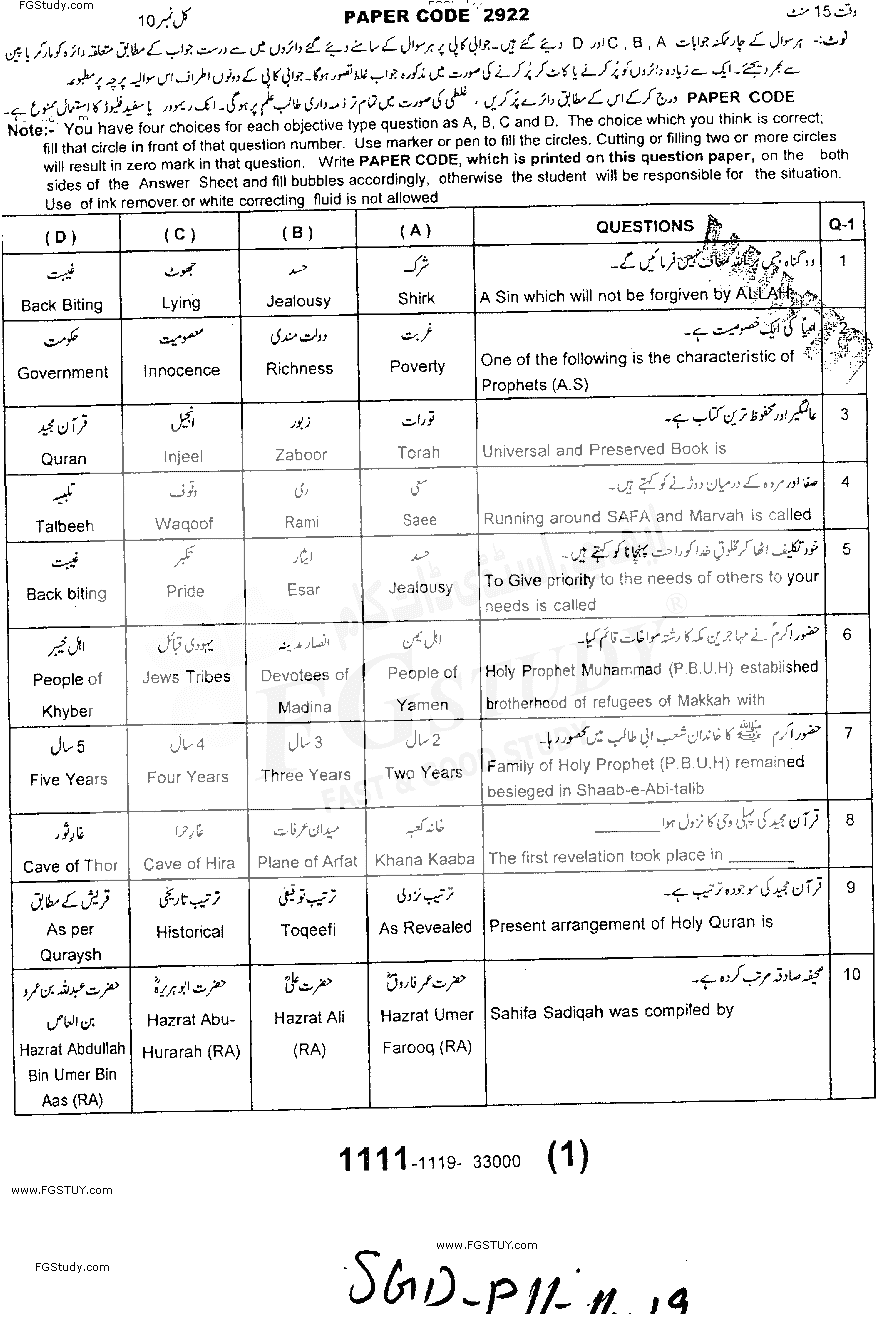 FGStudy.com
کل نمبر 10 PAPER CODE 2922 وقت 15 منٹ
نوٹ:- ہر سوال کے چار ممکنہ جوابات A , B , C اور D دیئے گئے ہیں۔ جوابی کاپی پر ہر سوال کے سامنے دیئے گئے دائروں میں سے درست جواب کے مطابق متعلقہ دائرہ کو مارکر یا پین
سے بھر دیجئے۔ ایک سے زیادہ دائروں کو پُر کرنے یا کاٹ کر پُر کرنے کی صورت میں مذکورہ جواب غلط تصور ہوگا۔ جوابی کاپی کے دونوں اطراف اس سوالیہ پرچہ پر مطبوعہ
PAPER CODE درج کرکے اس کے مطابق دائرے پُر کریں ، غلطی کی صورت میں تمام تر ذمہ داری طالب علم پر ہوگی۔ انک ریمور یا سفید فلیوڈ کا استعمال ممنوع ہے۔
Note:- You have four choices for each objective type question as A, B, C and D. The choice which you think is correct;
fill that circle in front of that question number. Use marker or pen to fill the circles. Cutting or filling two or more circles
will result in zero mark in that question. Write PAPER CODE, which is printed on this question paper, on the both
sides of the Answer Sheet and fill bubbles accordingly, otherwise the student will be responsible for the situation.
Use of ink remover or white correcting fluid is not allowed
( D ) ( C ) ( B ) ( A ) QUESTIONS Q-1
غیبت جھوٹ حسد شرک وہ گناہ جس پر اللہ معاف نہیں فرمائیں گے۔ 1
Back Biting Lying Jealousy Shirk A Sin which will not be forgiven by ALLAH
حکومت معصومیت دولت مندی غربت انبیاً کی ایک خصوصیت ہے۔ 2
Government Innocence Richness Poverty One of the following is the characteristic of
Prophets (A.S)
قرآن مجید انجیل زبور تورات عالمگیر اور محفوظ ترین کتاب ہے۔ 3
Quran Injeel Zaboor Torah Universal and Preserved Book is
تلبیہ وقوف رمی سعی صفا اور مروہ کے درمیان دوڑنے کو کہتے ہیں۔ 4
Talbeeh Waqoof Rami Saee Running around SAFA and Marvah is called
غیبت تکبر ایثار حسد خود تکلیف اٹھا کر مخلوقِ خدا کو راحت پہنچانا کو کہتے ہیں۔ 5
Back biting Pride Esar Jealousy To Give priority to the needs of others to your
needs is called
اہل خیبر یہودی قبائل انصار مدینہ اہل یمن حضور اکرم نے مہاجرین مکہ کا رشتہ مواخات قائم کیا۔ 6
People of Jews Tribes Devotees of People of Holy Prophet Muhammad (P.B.U.H) established
Khyber Madina Yamen brotherhood of refugees of Makkah with
5 سال 4 سال 3 سال 2 سال حضور اکرم ﷺ کا خاندان شعب ابی طالب میں محصور رہا۔ 7
Five Years Four Years Three Years Two Years Family of Holy Prophet (P.B.U.H) remained
besieged in Shaab-e-Abi-talib
غارِ ثور غارِ حرا میدان عرفات خانہ کعبہ قرآن مجید کی پہلی وحی کا نزول ہوا ________ 8
Cave of Thor Cave of Hira Plane of Arfat Khana Kaaba The first revelation took place in ________
قریش کے مطابق ترتیب تاریخی ترتیب توقیفی ترتیب نزولی قرآن مجید کی موجودہ ترتیب ہے۔ 9
As per Historical Toqeefi As Revealed Present arrangement of Holy Quran is
Quraysh
حضرت عبداللہ بن عمرو حضرت ابوہریرہؓ حضرت علیؓ حضرت عمر فاروقؓ صحیفہ صادقہ مرتب کردہ ہے۔ 10
بن العاص Hazrat Abu- Hazrat Ali Hazrat Umer Sahifa Sadiqah was compiled by
Hazrat Abdullah Hurarah (RA) (RA) Farooq (RA)
Bin Umer Bin
Aas (RA)
FGSTUDY ®
FAST & GOOD STUDY
1111-1119- 33000 (1)
www.FGSTUY.com
www.FGSTUY.com
FGStudy.com
SGD-P11-11-19